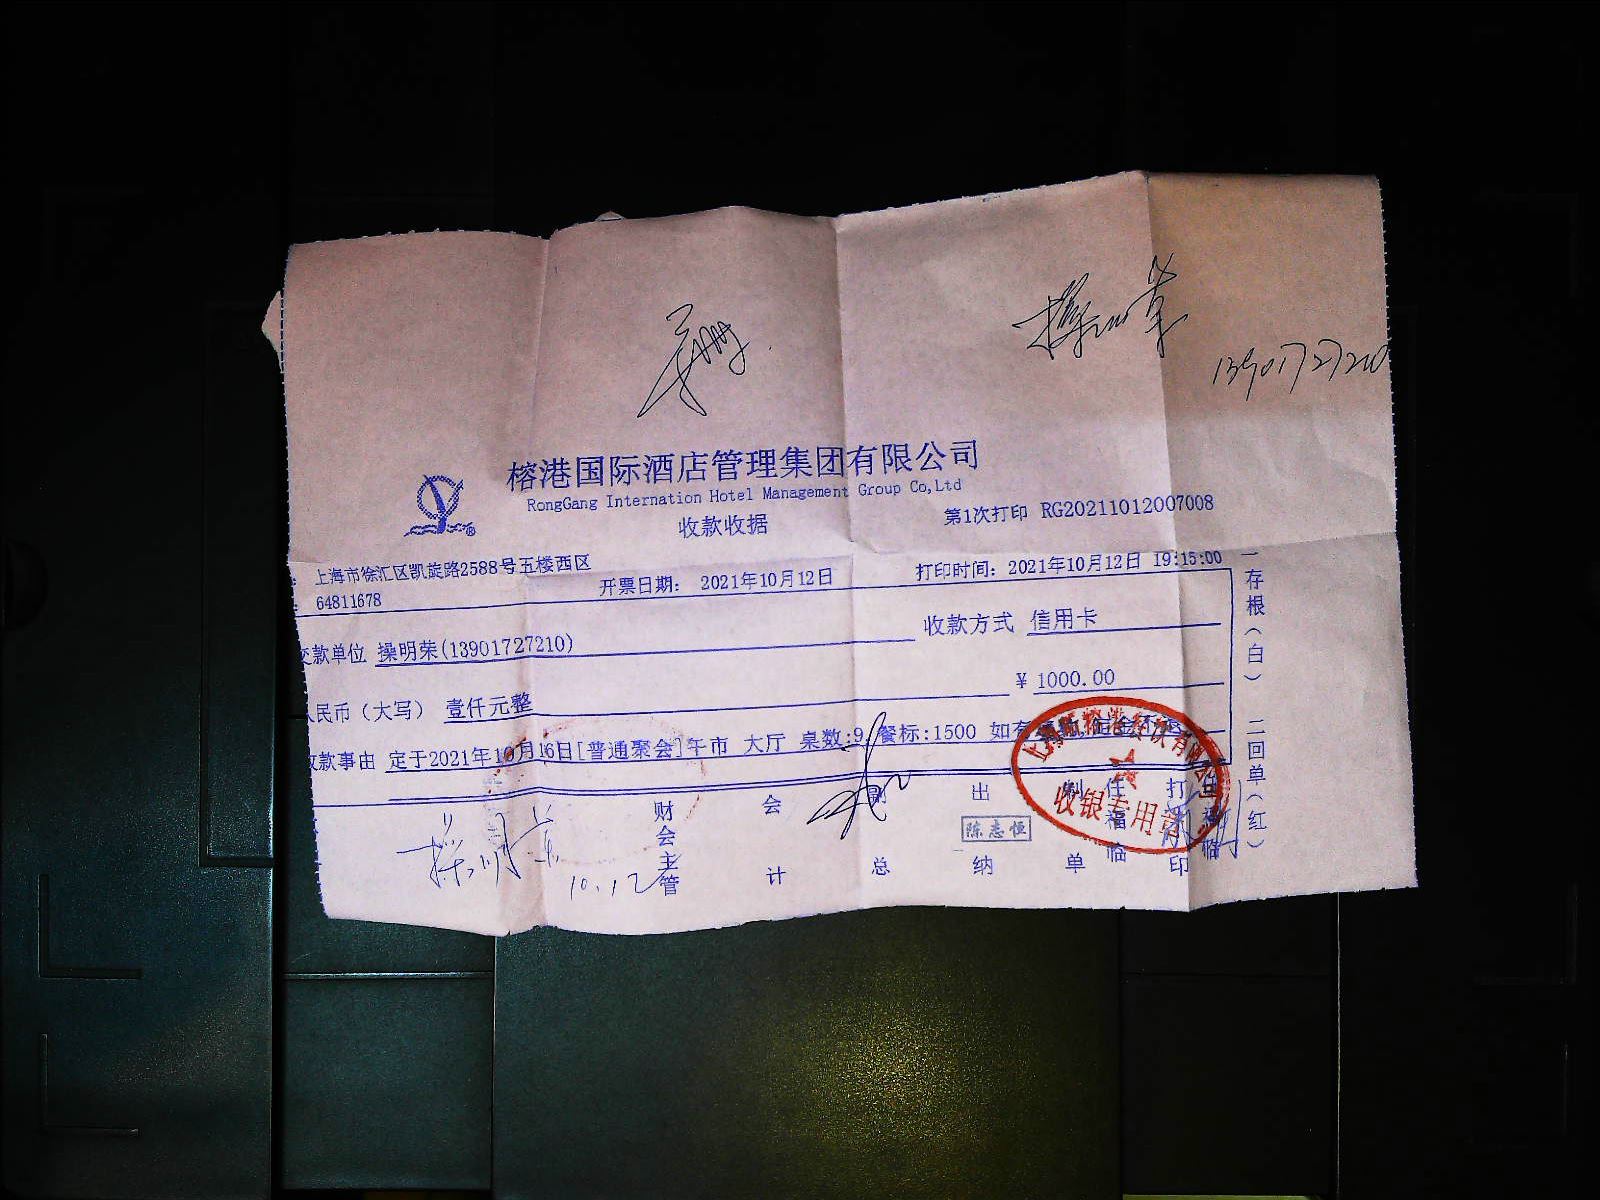 13901727210
榕港国际酒店管理集团有限公司
RongGang Internation Hotel Management Group Co,Ltd
收款收据
第1次打印 RG20211012007008
上海市徐汇区凯旋路2588号五楼西区
64811678
开票日期: 2021年10月12日
打印时间: 2021年10月12日 19:15:00
交款单位 操明荣(13901727210)
收款方式 信用卡
人民币(大写) 壹仟元整
¥ 1000.00
收款事由 定于2021年10月16日[普通聚会]午市 大厅 桌数:9 餐标:1500 如有
一存根(白) 二回单(红)
财会主管
会计
副总
出纳
陈志恒
制单
任福临
打印
收银专用章
操明荣
10.12